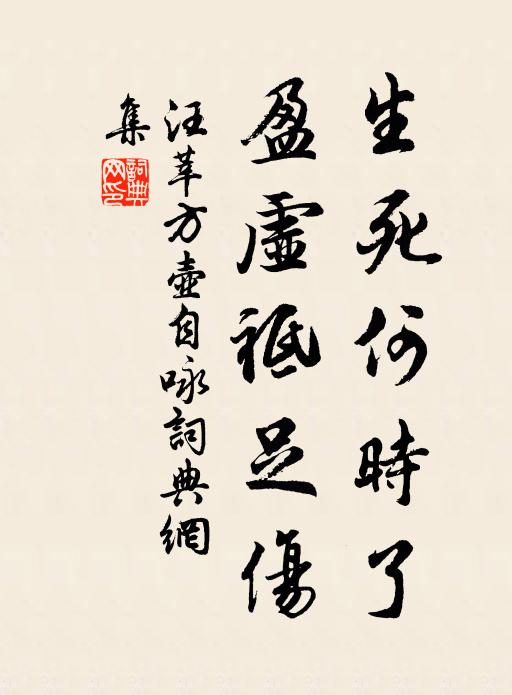 生死何時了
盈虛祗足傷
汪莘方壺自咏詞典網
集
詞典網印